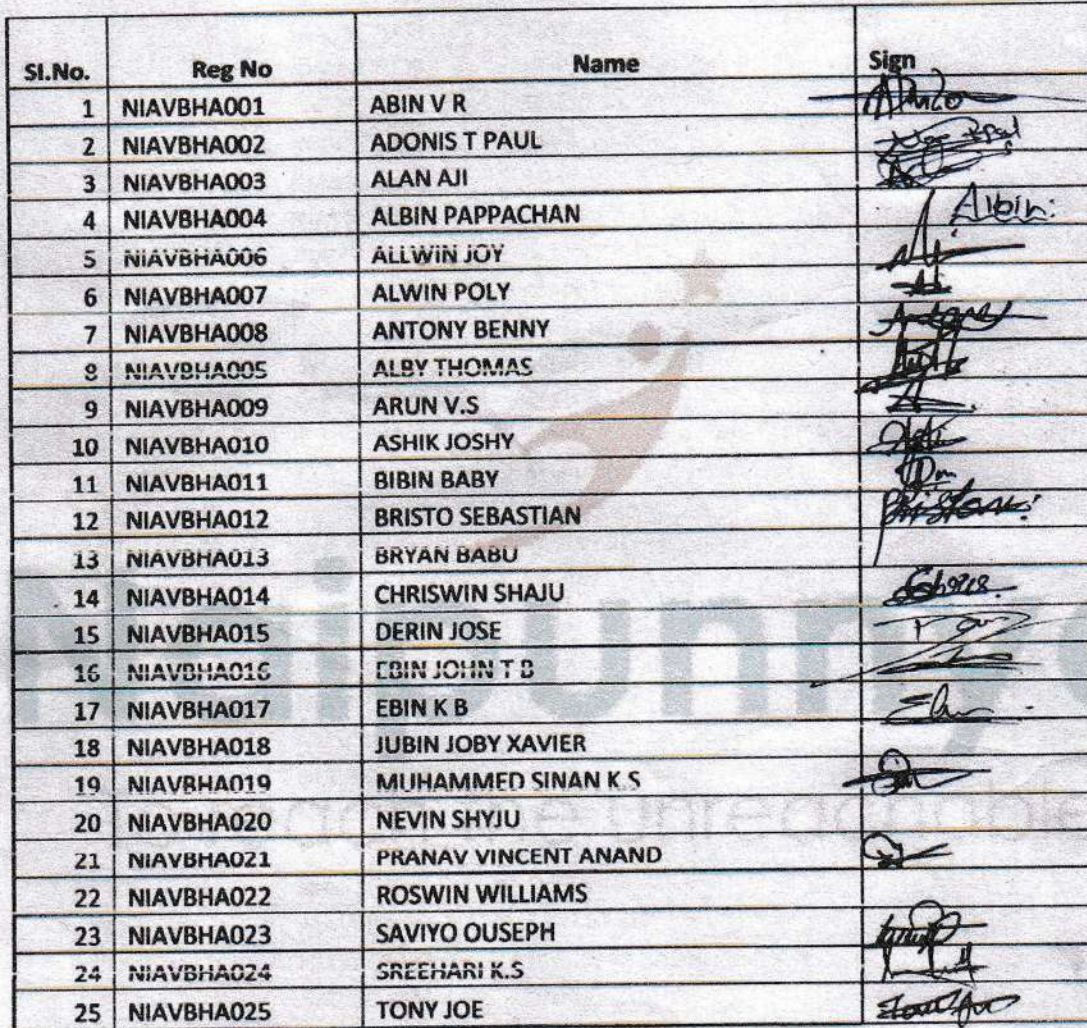 Sl.No. Reg No Name Sign
1 NIAVBHA001 ABIN V R
2 NIAVBHA002 ADONIS T PAUL
3 NIAVBHA003 ALAN AJI
4 NIAVBHA004 ALBIN PAPPACHAN Albin
5 NIAVBHA006 ALLWIN JOY
6 NIAVBHA007 ALWIN POLY
7 NIAVBHA008 ANTONY BENNY
8 NIAVBHA005 ALBY THOMAS
9 NIAVBHA009 ARUN V.S
10 NIAVBHA010 ASHIK JOSHY
11 NIAVBHA011 BIBIN BABY
12 NIAVBHA012 BRISTO SEBASTIAN
13 NIAVBHA013 BRYAN BABU
14 NIAVBHA014 CHRISWIN SHAJU
15 NIAVBHA015 DERIN JOSE
16 NIAVBHA016 EBIN JOHN T B
17 NIAVBHA017 EBIN K B
18 NIAVBHA018 JUBIN JOBY XAVIER
19 NIAVBHA019 MUHAMMED SINAN K.S
20 NIAVBHA020 NEVIN SHYJU
21 NIAVBHA021 PRANAV VINCENT ANAND
22 NIAVBHA022 ROSWIN WILLIAMS
23 NIAVBHA023 SAVIYO OUSEPH
24 NIAVBHA024 SREEHARI K.S
25 NIAVBHA025 TONY JOE